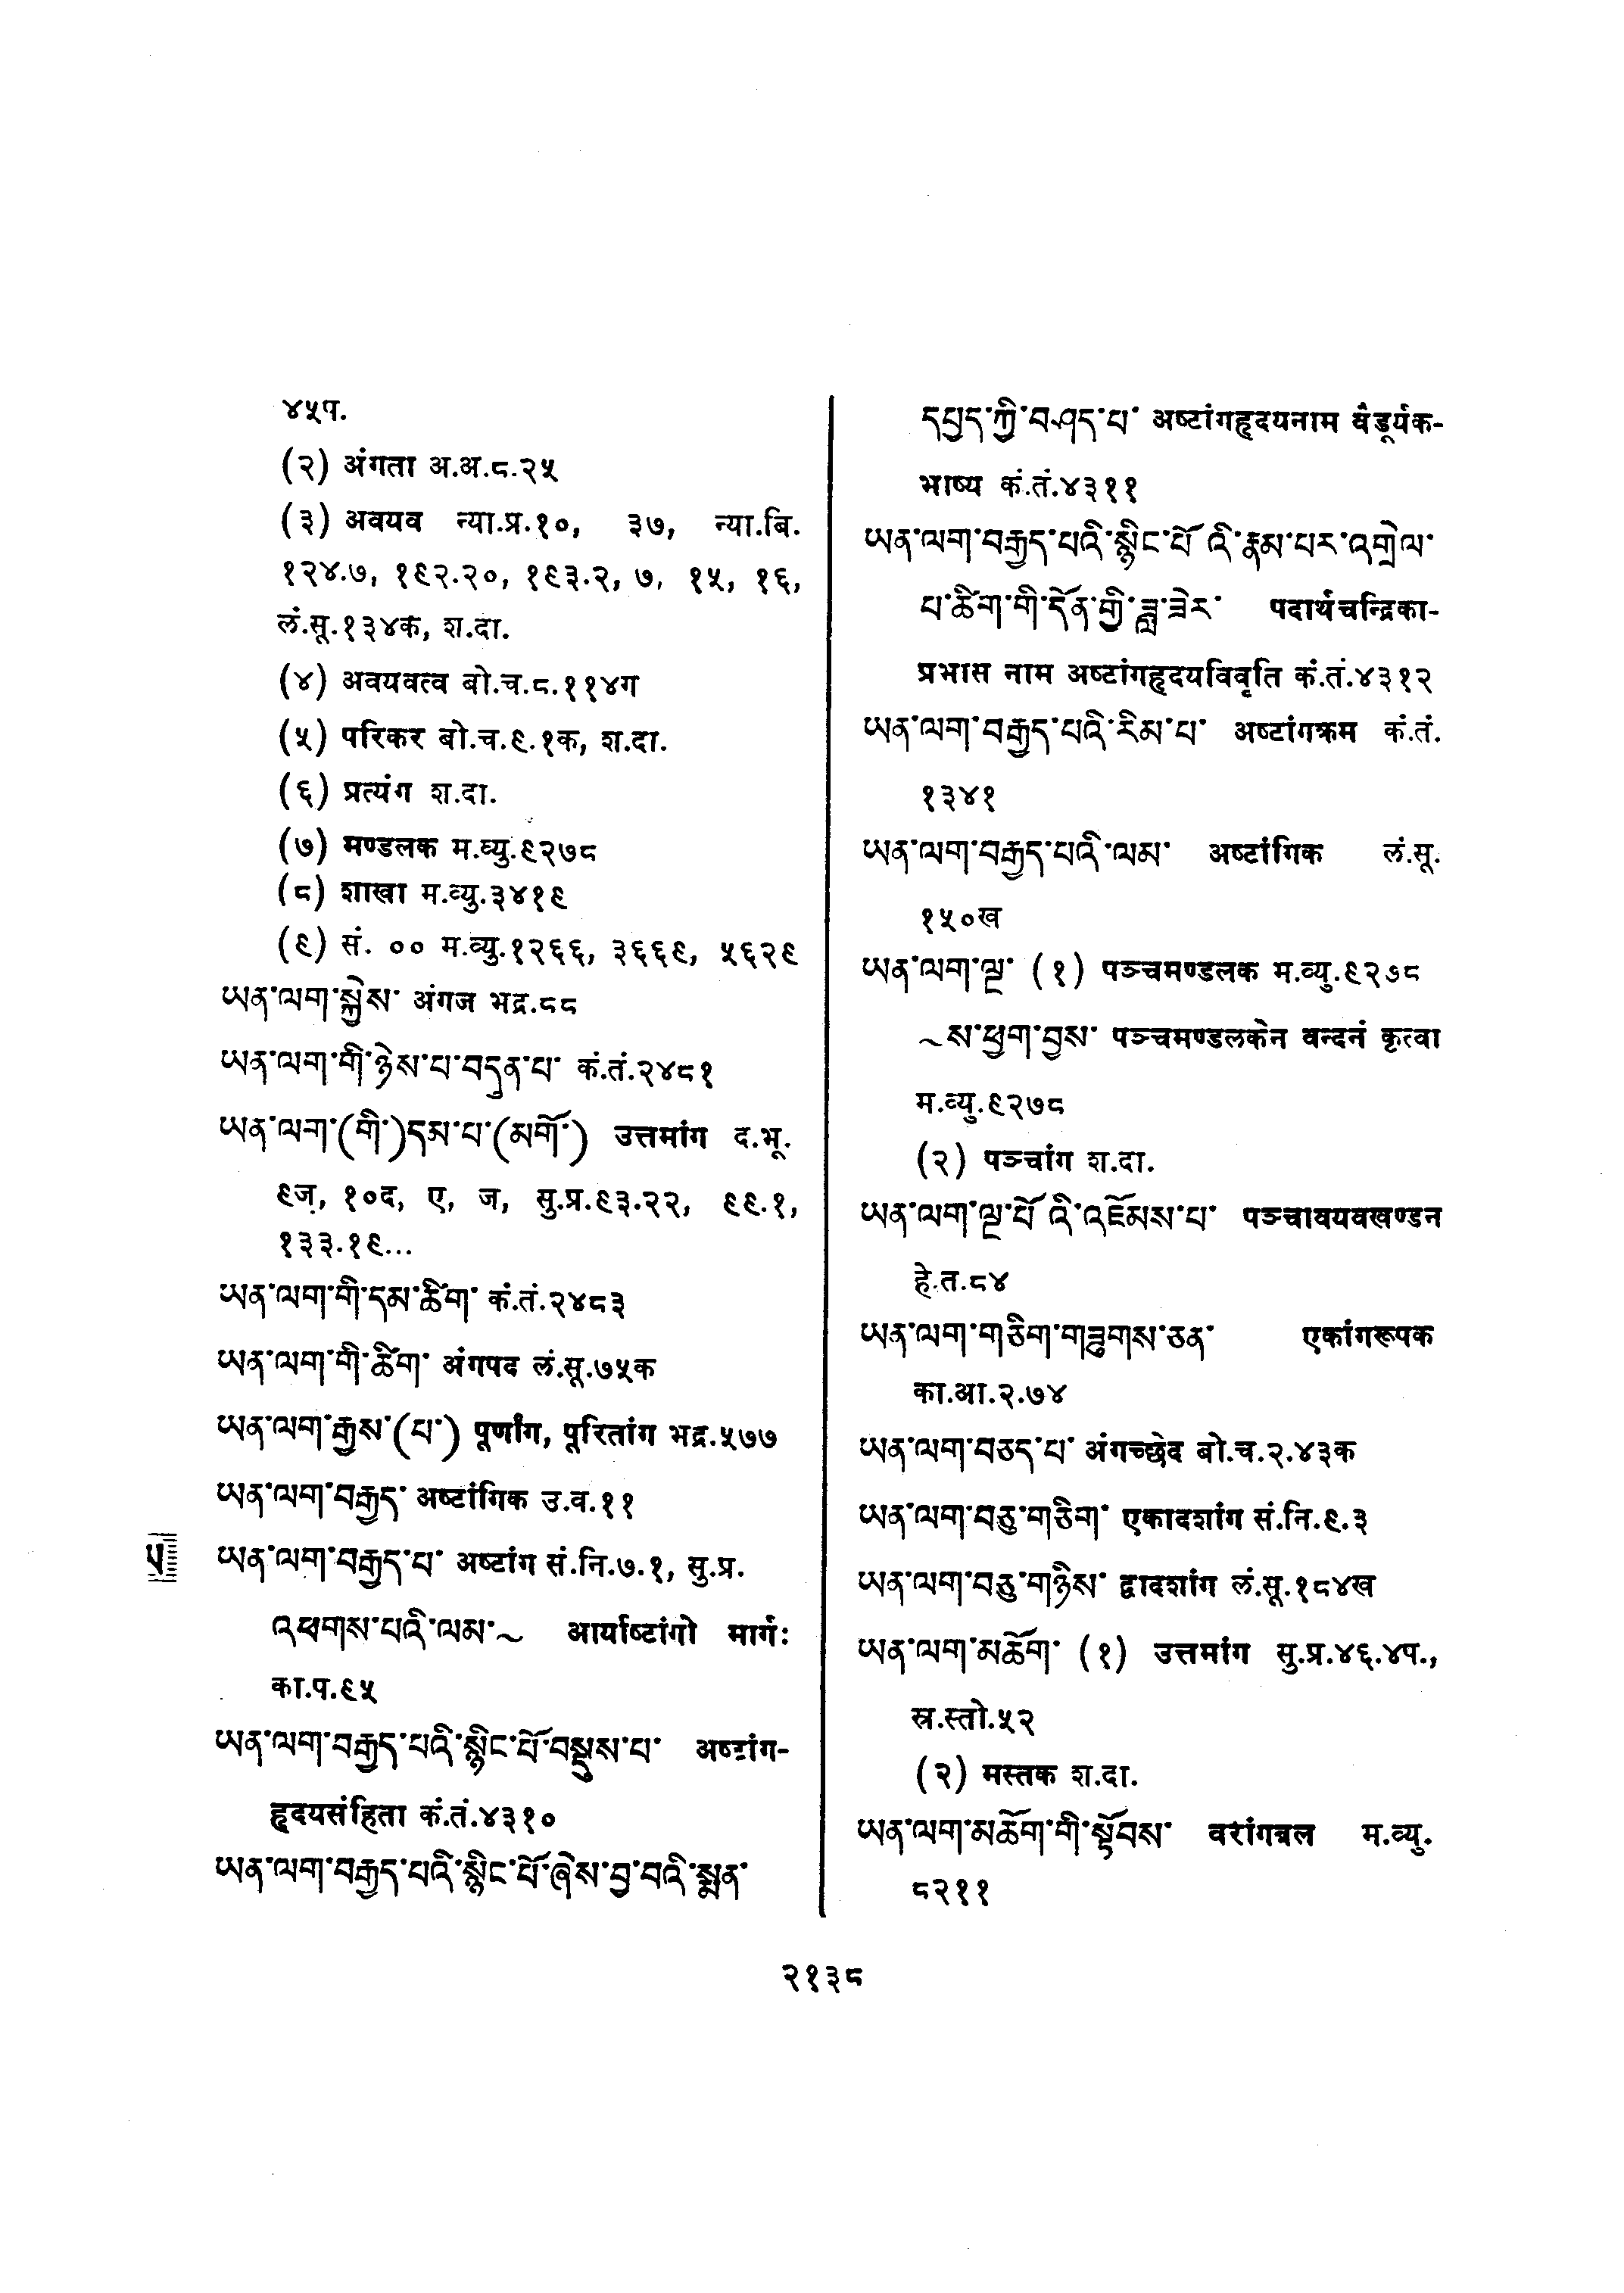 ४५प.
(२) अंगता अ.अ.८.२५
(३) अवयव न्या.प्र.१०, ३७, न्या.बि.
१२४.७, १९२.२०, १९३.२, ७, १५, १६,
लं.सू.१३४क, श.दा.
(४) अवयवत्व बो.च.८.११४ग
(५) परिकर बो.च.९.१क, श.दा.
(६) प्रत्यंग श.दा.
(७) मण्डलक म.व्यु.९२७८
(८) शाखा म.व्यु.३४१९
(९) सं. ०० म.व्यु.१२६६, ३६६९, ५६२९
ཡན་ལག་སྐྱེས་ अंगज भद्र.८८
ཡན་ལག་གི་ཉེས་པ་བདུན་པ་ कं.तं.२४८१
ཡན་ལག་(གི་)དམ་པ་(མགོ་) उत्तमांग द.भू.
९ज, १०द, ए, ज, सु.प्र.९३.२२, ९९.१,
१३३.१९...
ཡན་ལག་གི་དམ་ཚིག་ कं.तं.२४८३
ཡན་ལག་གི་ཚིག་ अंगपद लं.सू.७५क
ཡན་ལག་རྒྱས་(པ་) पूर्णांग, पूरितांग भद्र.५७७
ཡན་ལག་བརྒྱད་ अष्टांगिक उ.व.११
ཡན་ལག་བརྒྱད་པ་ अष्टांग सं.नि.७.१, सु.प्र.
འཕགས་པའི་ལམ་~ आर्याष्टांगो मार्गः
का.प.९५
ཡན་ལག་བརྒྱད་པའི་སྙིང་པོ་བསྡུས་པ་ अष्टांग-
हृदयसंहिता कं.तं.४३१०
ཡན་ལག་བརྒྱད་པའི་སྙིང་པོ་ཞེས་བྱ་བའི་སྨན་
དཔྱད་ཀྱི་བཤད་པ་ अष्टांगहृदयनाम वैडूर्यक-
भाष्य कं.तं.४३११
ཡན་ལག་བརྒྱད་པའི་སྙིང་པོ་འི་རྣམ་པར་འགྲེལ་
པ་ཚིག་གི་དོན་གྱི་ཟླ་ཟེར་ पदार्थचन्द्रिका-
प्रभास नाम अष्टांगहृदयविवृति कं.तं.४३१२
ཡན་ལག་བརྒྱད་པའི་རིམ་པ་ अष्टांगक्रम कं.तं.
१३४१
ཡན་ལག་བརྒྱད་པའི་ལམ་ अष्टांगिक लं.सू.
१५०ख
ཡན་ལག་ལྔ་ (१) पञ्चमण्डलक म.व्यु.९२७८
~ས་ཕྱག་བྱས་ पञ्चमण्डलकेन वन्दनं कृत्वा
म.व्यु.९२७८
(२) पञ्चांग श.दा.
ཡན་ལག་ལྔ་པོ་འི་འཇོམས་པ་ पञ्चावयवखण्डन
हे.त.८४
ཡན་ལག་གཅིག་གཟུགས་ཅན་ एकांगरूपक
का.आ.२.७४
ཡན་ལག་བཅད་པ་ अंगच्छेद बो.च.२.४३क
ཡན་ལག་བཅུ་གཅིག་ एकादशांग सं.नि.९.३
ཡན་ལག་བཅུ་གཉིས་ द्वादशांग लं.सू.१८४ख
ཡན་ལག་མཆོག་ (१) उत्तमांग सु.प्र.४६.४प.,
स्र.स्तो.५२
(२) मस्तक श.दा.
ཡན་ལག་མཆོག་གི་སྟོབས་ वरांगबल म.व्यु.
८२११
२१३८